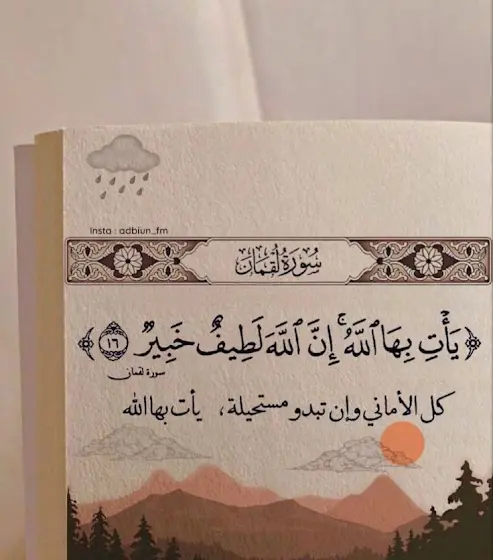 Insta : adbiun_fm
سُورَةُ لُقْمَانَ
﴿يَأْتِ بِهَا ٱللَّهُ ۚ إِنَّ ٱللَّهَ لَطِيفٌ خَبِيرٌ ١٦﴾
سورة لقمان
كل الأماني وإن تبدو مستحيلة، يأت بها الله